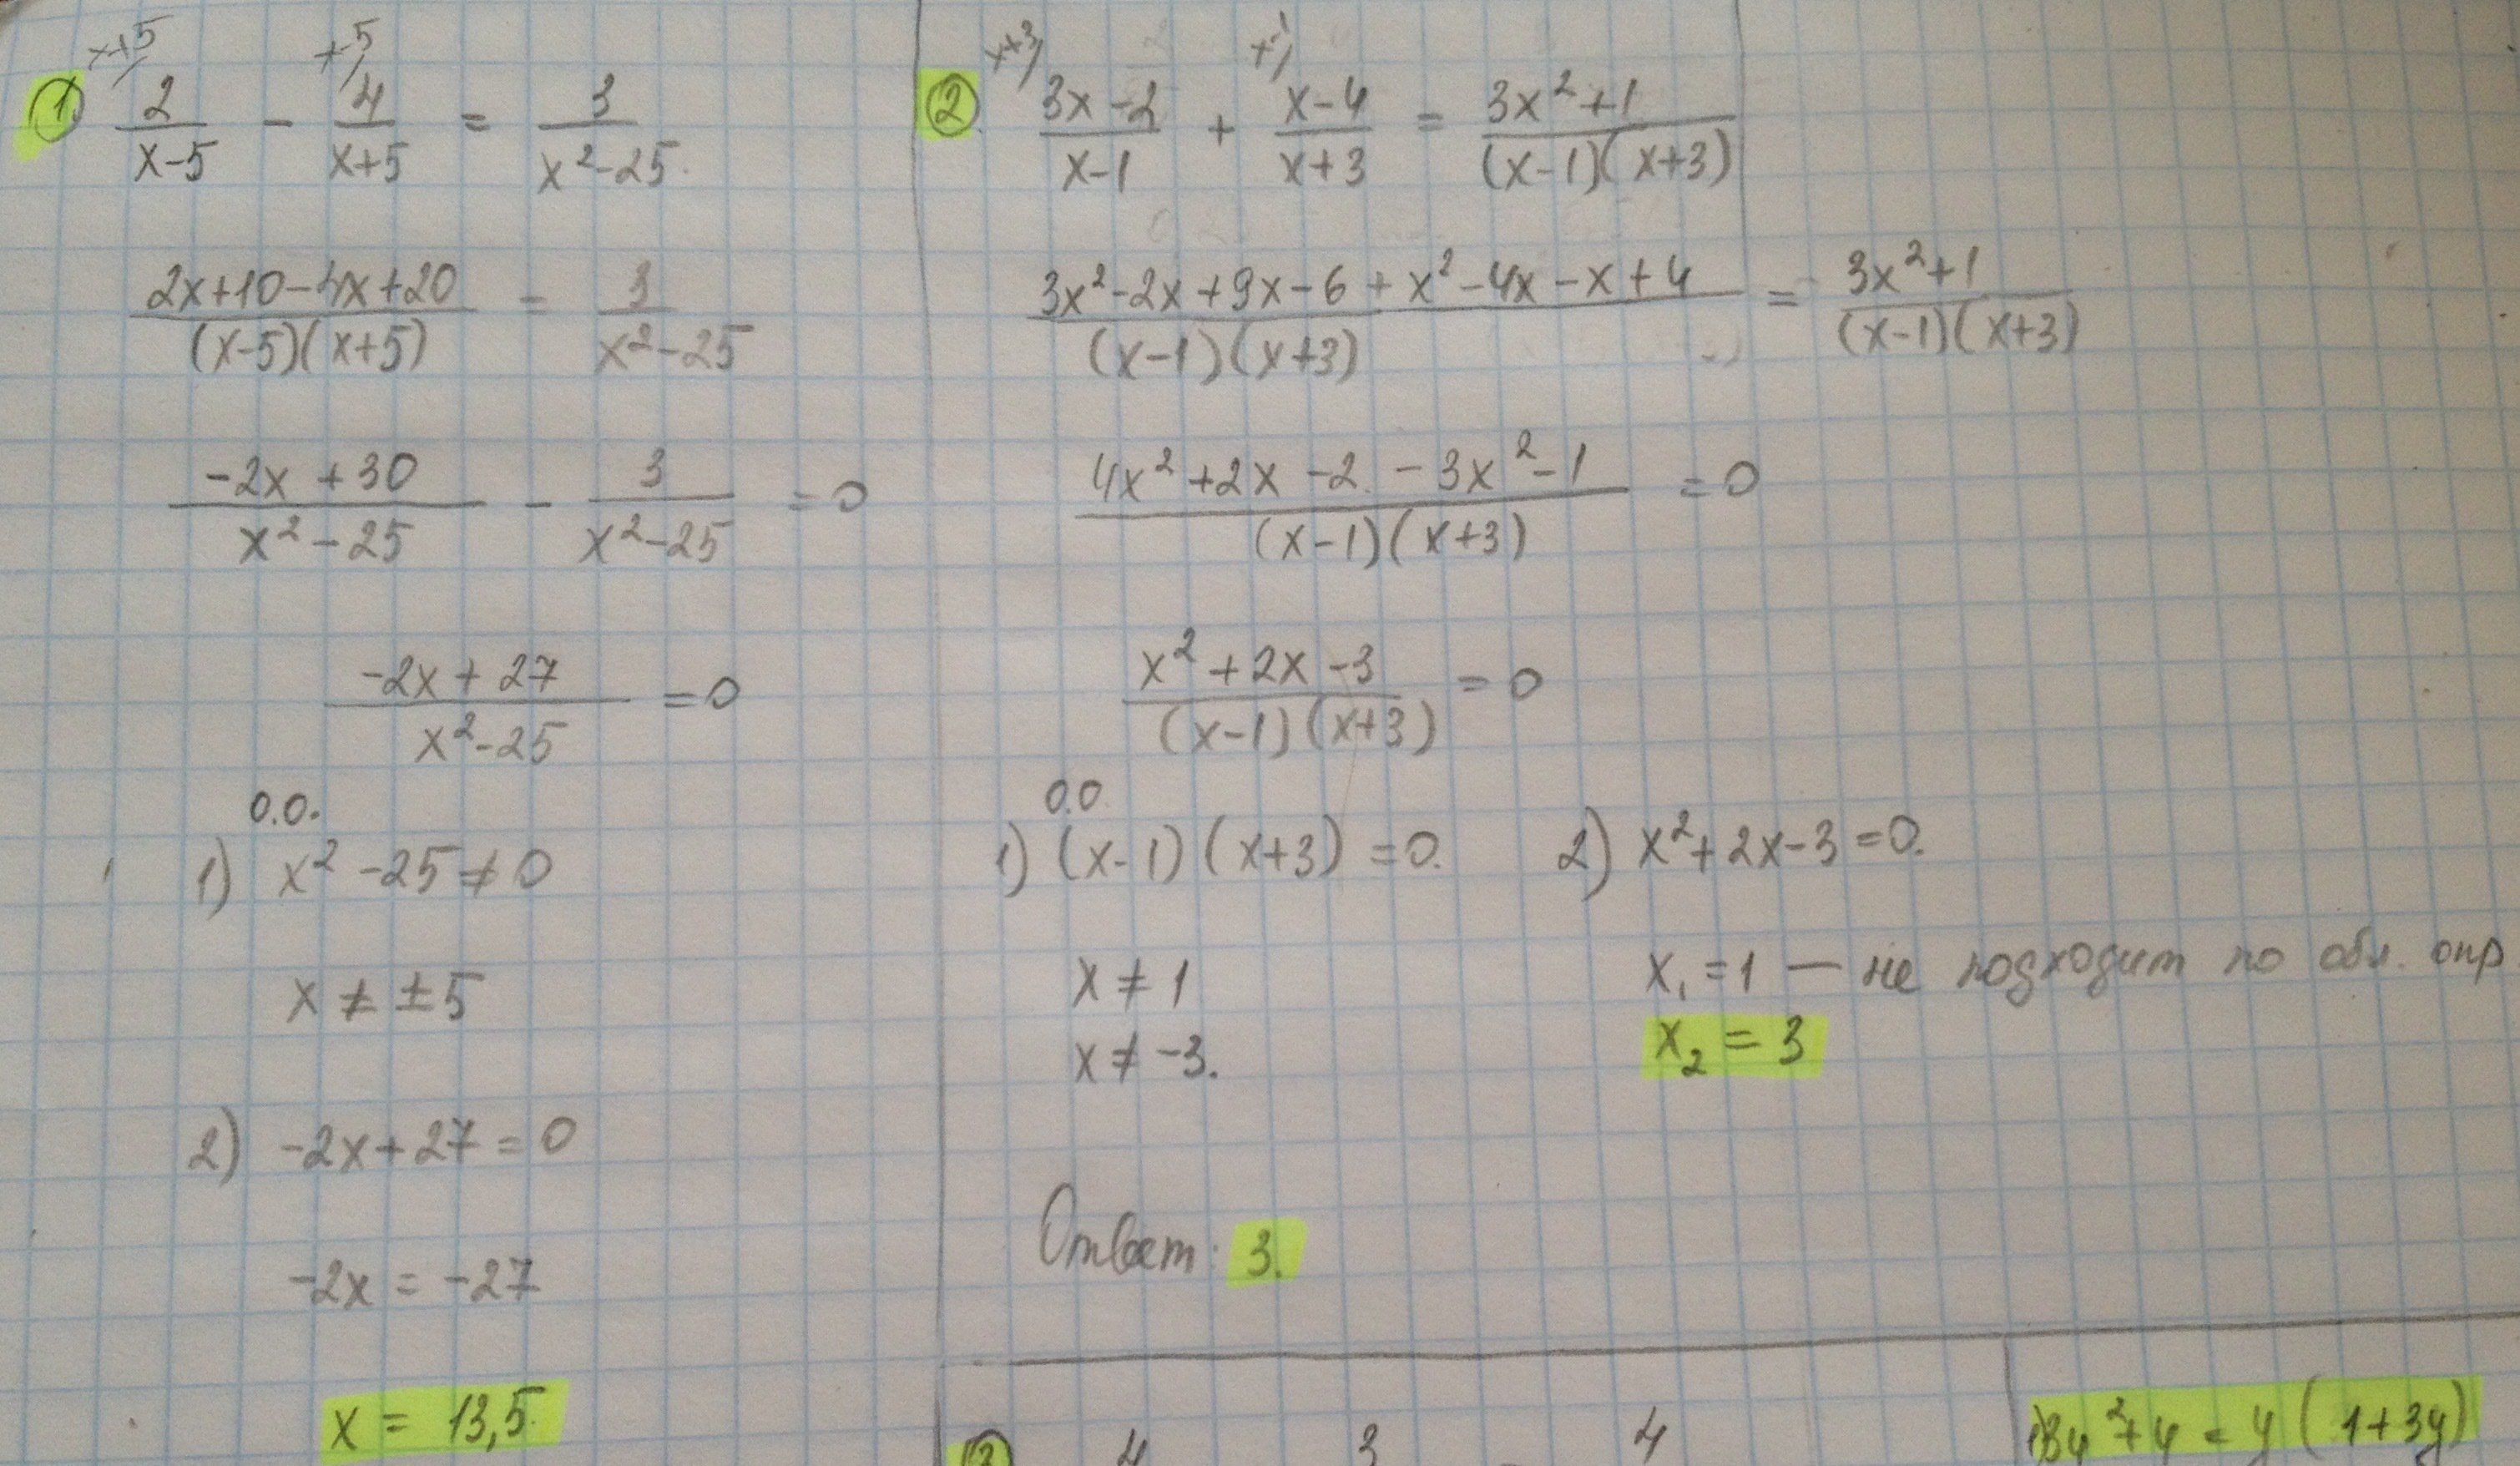 x+5/ x-5/
1. 2/(x-5) - 4/(x+5) = 3/(x²-25)
(2x+10-4x+20)/((x-5)(x+5)) = 3/(x²-25)
(-2x+30)/(x²-25) - 3/(x²-25) = 0
(-2x+27)/(x²-25) = 0
О.О.
1) x²-25≠0
x ≠ ±5
2) -2x+27=0
-2x = -27
x = 13,5.
x+3/ x-1/
2. (3x-2)/(x-1) + (x-4)/(x+3) = (3x²+1)/((x-1)(x+3))
(3x²-2x+9x-6+x²-4x-x+4)/((x-1)(x+3)) = (3x²+1)/((x-1)(x+3))
(4x²+2x-2-3x²-1)/((x-1)(x+3)) = 0
(x²+2x-3)/((x-1)(x+3)) = 0
О.О
1) (x-1)(x+3)=0. 2) x²+2x-3=0.
x ≠ 1 x₁=1 — не подходит по обл. опр.
x ≠ -3. x₂ = 3
Ответ: 3.
3 4 3 - 4
1) 3y²+y = y(1+3y)